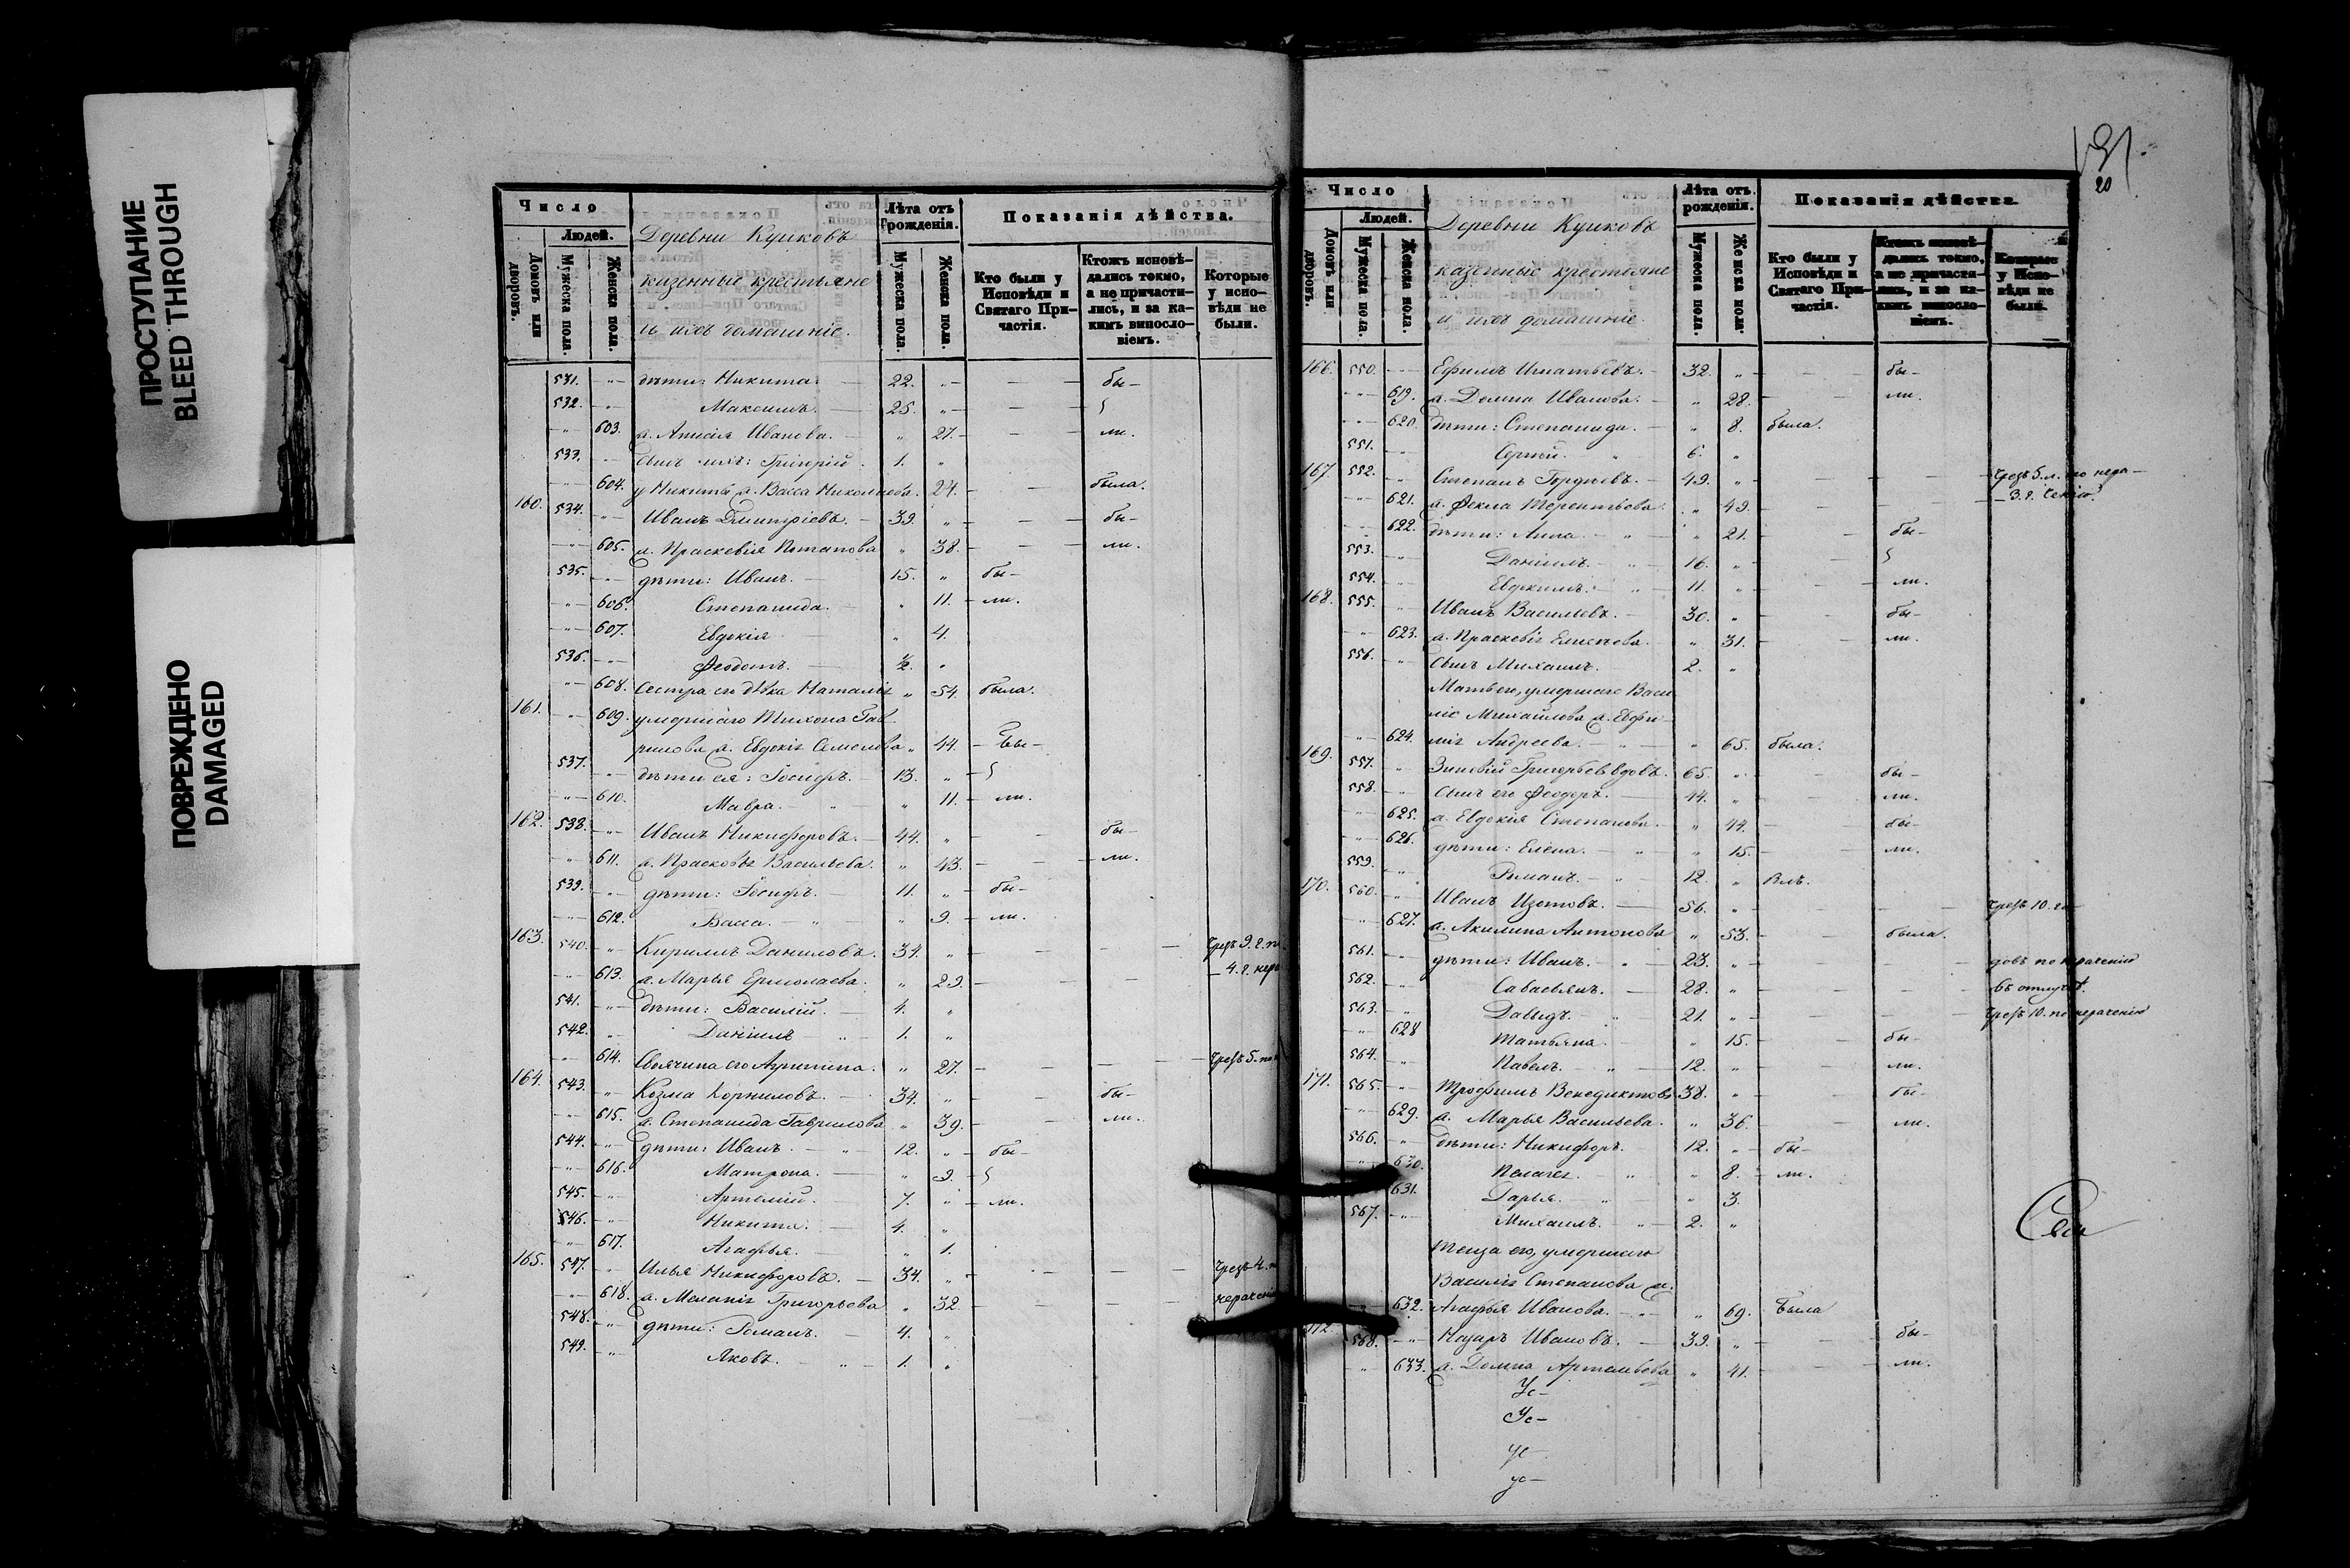 ПРОСТУПАНИЕ
BLEED THROUGH
ПОВРЕЖДЕНО
DAMAGED
Число
Людей.
Домовъ или дворовъ.
Мужеска пола.
Женска пола.
Деревни Куликовъ
казенные крестьяне
и ихъ домашніе.
Лѣта отъ рожденія.
Мужеска пола.
Женска пола.
Показанія дѣйства.
Кто были у Исповѣди и Святаго Причастія.
Ктожъ исповѣ-дались токмо, а не причасти-лись, и за ка-кимъ винословіемъ.
Которые у испо-вѣди не были.
531. дѣти: Никита. 22. бы-
532. Максимъ. 25.
603. а. Анисія Иванова. 27. ли.
533. сынъ ихъ: Григорій. 1.
604. у Никиты ж. Васса Николаева. 24. была.
160. 534. Иванъ Дмитріевъ. 39. бы-
605. ж. Праскевія Потапова 38. ли.
535. дѣти: Иванъ. 15. бы-
606. Степанида. 11. ли.
607. Евдокія 4.
536. Феодотъ. ½.
608. Сестра его дѣвка Наталія 54. была.
161. 609. умершаго Тихона Гав
рилова ж. Евдокія Семенова 44. бы-
537. дѣти ея: Іосифъ. 13.
610. Мавра. 11. ли.
162. 538. Иванъ Никифоровъ. 44. бы-
611. ж. Прасковья Васильева. 43. ли.
539. дѣти: Іосифъ. 11. бы-
612. Васса. 9. ли.
163. 540. Кириллъ Даниловъ. 34. чрезъ 9. г. п
613. ж. Марья Ермолаева. 29. 4. г. нера
541. дѣти: Василій. 4.
542. Даніилъ 1.
614. Своячина его Агрипина. 27. чрезъ 5. по
164. 543. Козма Корниловъ. 34. бы-
615. ж. Степанида Гаврилова 39. ли.
544. дѣти: Иванъ. 12. бы-
616. Матрона. 9.
545. Артемій. 7. ли.
546. Никита. 4.
617. Агафья. 1.
165. 547. Илья Никифоровъ. 34. чрезъ 4.
618. ж. Меланія Григорьева 32. нерачені
548. дѣти: Романъ. 4.
549. Яковъ. 1.
20
Число
Людей.
Домовъ или дворовъ.
Мужеска пола.
Женска пола.
Деревни Куликовъ
казенные крестьяне
и ихъ домашніе.
Лѣта отъ рожденія.
Мужеска пола.
Женска пола.
Показанія дѣйства
Кто были у Исповѣди и Святаго Причастія.
Ктожъ исповѣ-дались токмо, а не причасти-лись, и за ка-кимъ винословіемъ.
Которые у Испо-вѣди не были.
166. 550. Ефимъ Игнатьевъ. 32. бы-
619. ж. Домна Иванова. 28. ли.
620. дѣти: Степанида. 8. была.
551. Сергѣй. 6.
167. 552. Степанъ Гордѣевъ. 49. чрезъ 5. л. по нера-
621. ж. Фекла Терентьева. 49. 3. г. ченію.
622. дѣти: Анна. 21. бы-
553. Даніилъ. 16.
554. Евдокимъ. 11. ли.
168. 555. Иванъ Васильевъ. 30. бы-
623. ж. Праскевія Елисеева. 31. ли.
556. сынъ Михаилъ. 2.
Мать его, умершаго Васи
лія Михайлова ж. Евфи-
624. мія Андреева. 65. была.
169. 557. Зиновій Григорьевъ вдовъ. 65. бы-
558. сынъ его Феодоръ. 44. ли.
625. ж. Евдокія Степанова. 44. бы-
626. дѣти: Елена. 15. ли.
559. Романъ. 12. былъ.
170. 560. Иванъ Изотовъ. 56. чрезъ 10. го-
627. ж. Акилина Антонова 53. была.
561. дѣти: Иванъ. 23. довъ по нераченію
562. Савастьянъ. 28. въ отлучкѣ.
563. Давидъ. 21. чрезъ 10. по нераченію
628 Татьяна. 15. бы-
564. Павелъ. 12. ли.
171. 565. Трофимъ Венедиктовъ 38. бы-
629. ж. Марья Васильева. 36. ли.
566. дѣти: Никифоръ. 12. бы-
630. Пелагея. 8. ли.
631. Дарья. 3.
567. Михаилъ. 2.
Теща его, умершаго
Василія Степанова ж.
632. Агафья Иванова. 69. была
172. 568. Назаръ Ивановъ. 39. бы-
633. ж. Домна Артемьева 41. ли.